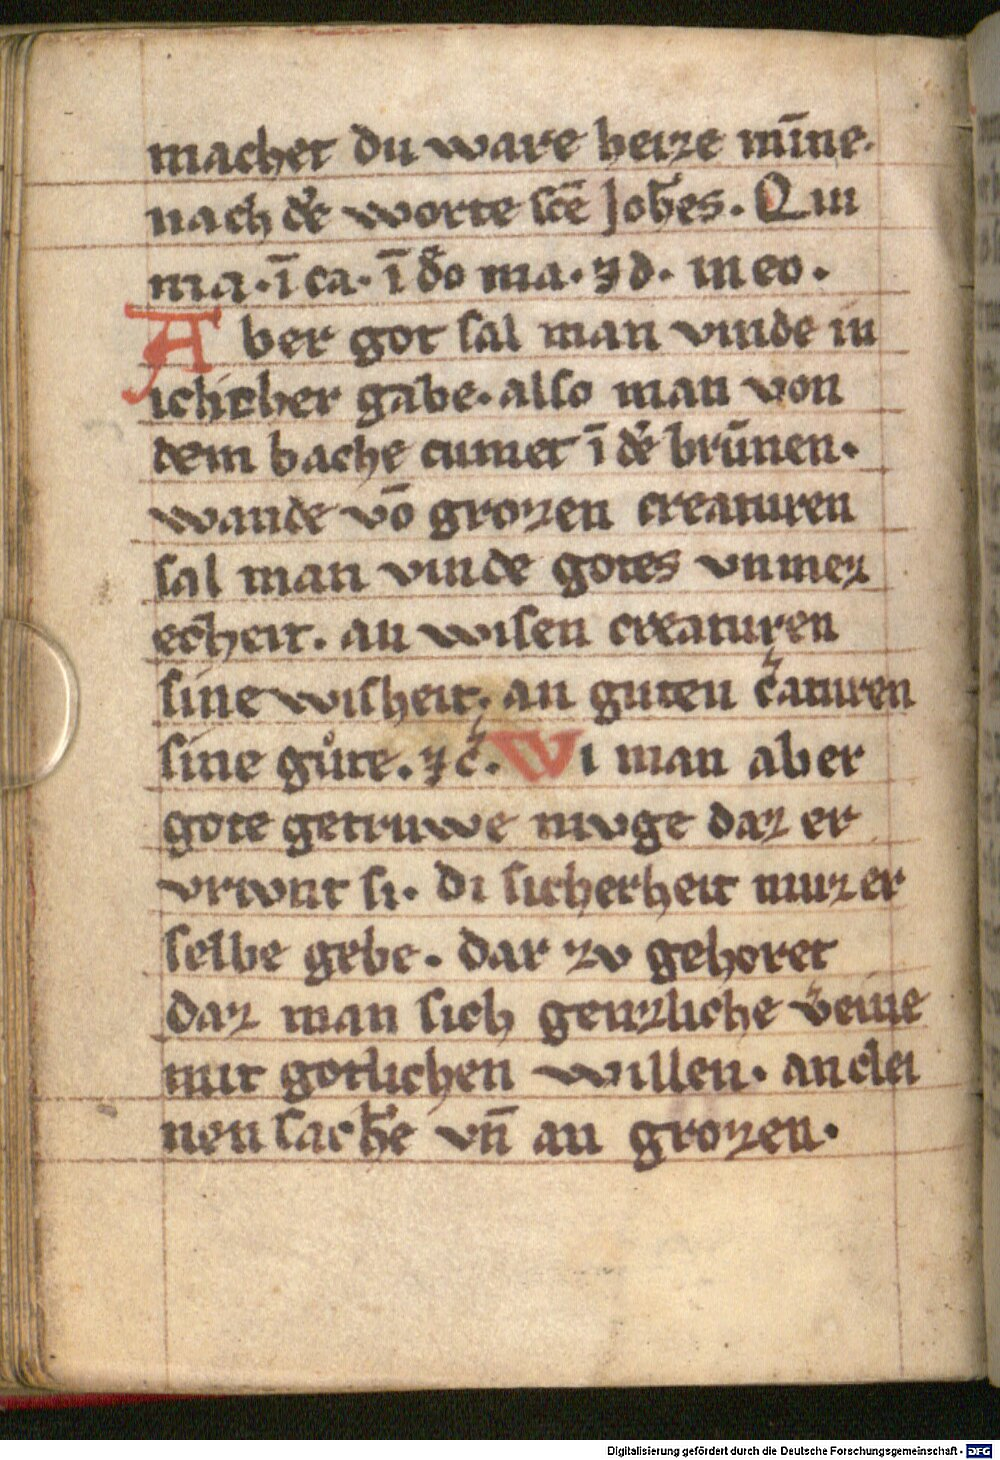 machet du ware heize mīne.
nach dᵉr worte scē Joħes. Qui
ma. ī ca. ī dō ma. ⁊ d. in eo.
Aber got sal man vinde in
ichcher gabe. also man von
dem bache cumet ī dᵉ brūnen.
wande vō grozen creaturen
sal man vinde gotes vnmez
echeit. an wisen creaturen
sine wisheit. an guten c᷒aturen
sine guͦte. ⁊ c᷒. Wi man aber
gote getruwe mvge daz er
vrivnt si. di sicherheit muz er
selbe gebe. dar zv gehoret
daz man sich genzliche v᷒eine
mit gotlichen willen. an clei
nen sachē vn̄ an grozen.
Digitalisierung gefördert durch die Deutsche Forschungsgemeinschaft - DFG